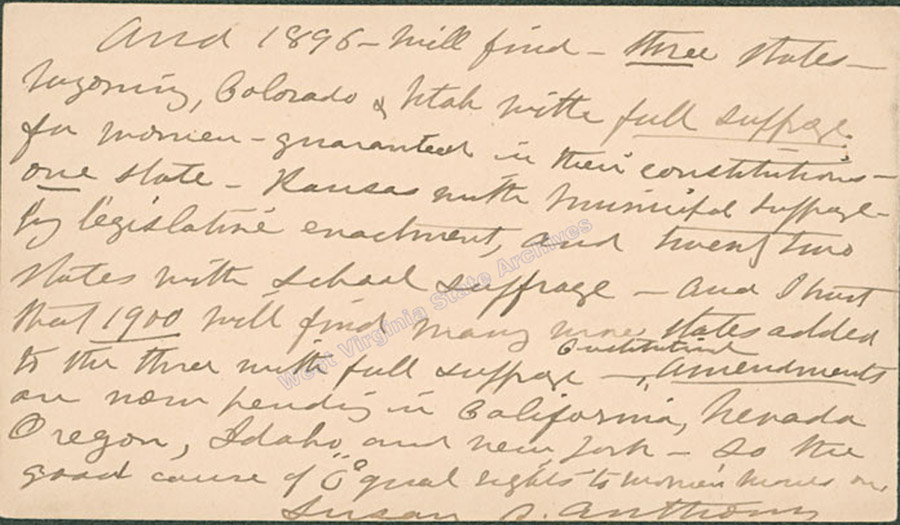 And 1896 - will find - three states -
Wyoming, Colorado & Utah with full suffrage
for women - guaranteed in their constitutions -
one state - Kansas with Municipal suffrage -
by legislative enactment, and twenty two
states with school suffrage - and I trust
that 1900 will find many more states added
to the three with full suffrage - Constitutional Amendments
are now pending in California, Nevada
Oregon, Idaho, and New York - So the
good cause of Equal rights to women moves on
Susan B. Anthony
West Virginia State Archives